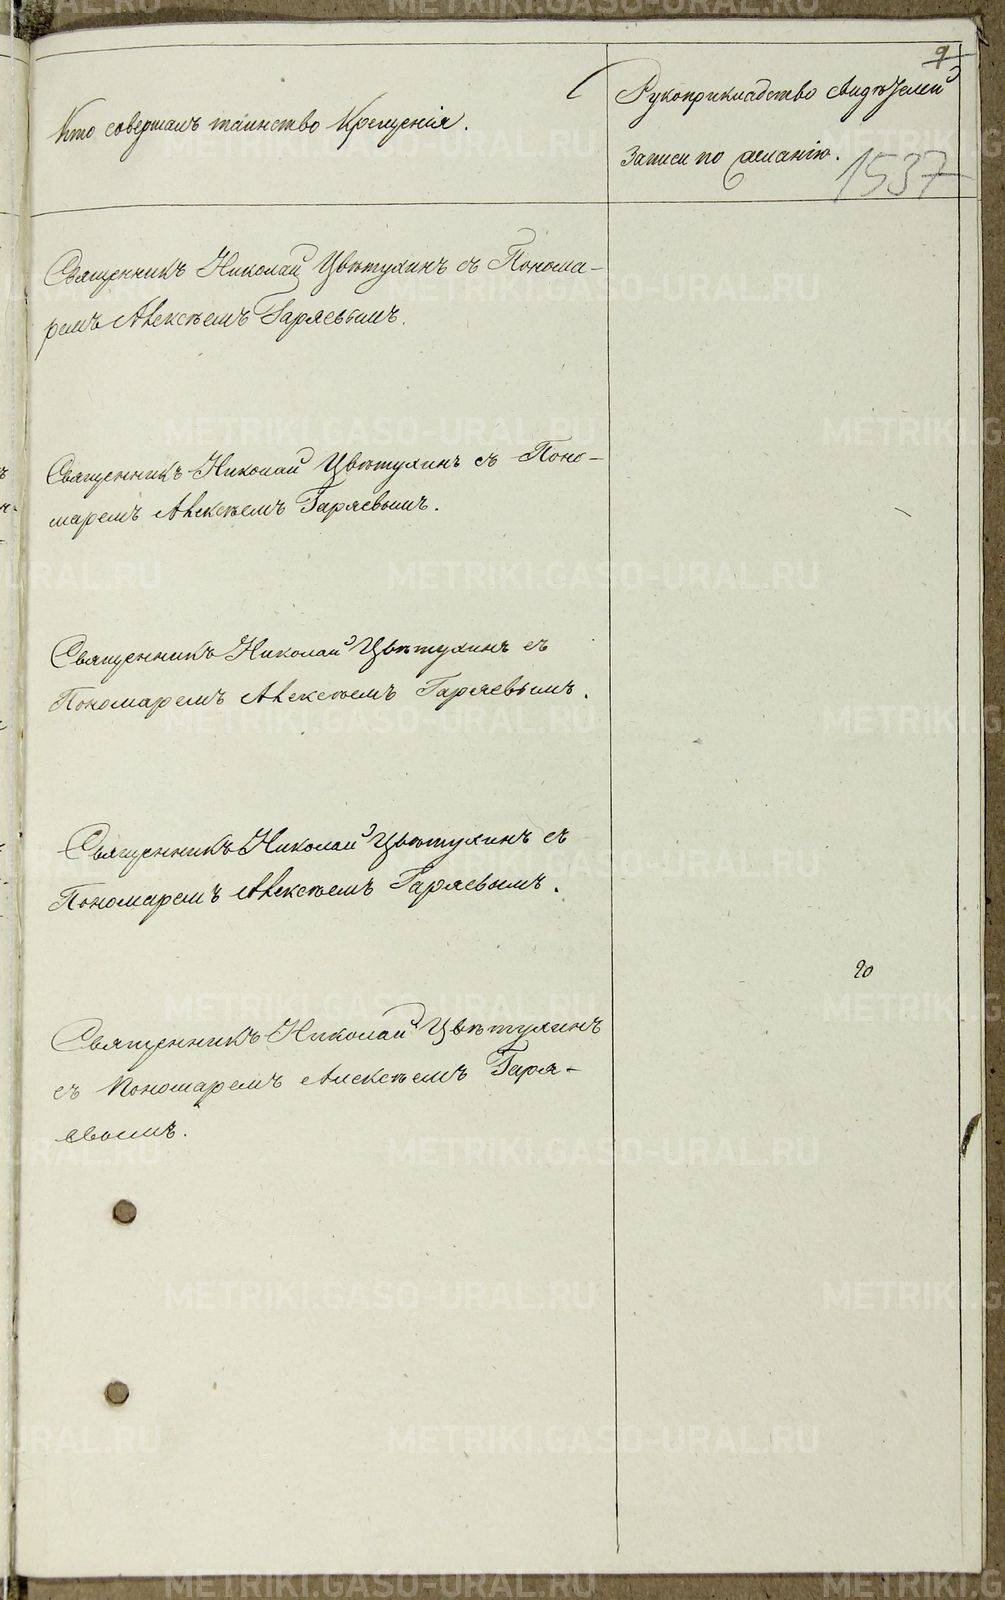 9
Кто совершалъ таинство Крещенія.
Рукоприкладство свидѣтелей
записи по желанію.
1537
Священникъ Николай Цвѣтухинъ съ Понома-
ремъ Алексѣемъ Гаряевымъ.
Священникъ Николай Цвѣтухинъ съ Поно-
маремъ Алексѣемъ Гаряевымъ.
Священникъ Николай Цвѣтухинъ съ
Пономаремъ Алексѣемъ Гаряевымъ.
Священникъ Николай Цвѣтухинъ съ
Пономаремъ Алексѣемъ Гаряевымъ.
20
Священникъ Николай Цвѣтухинъ
съ Пономаремъ Алексѣемъ Гаря-
евымъ.
METRIKI.GASO-URAL.RU